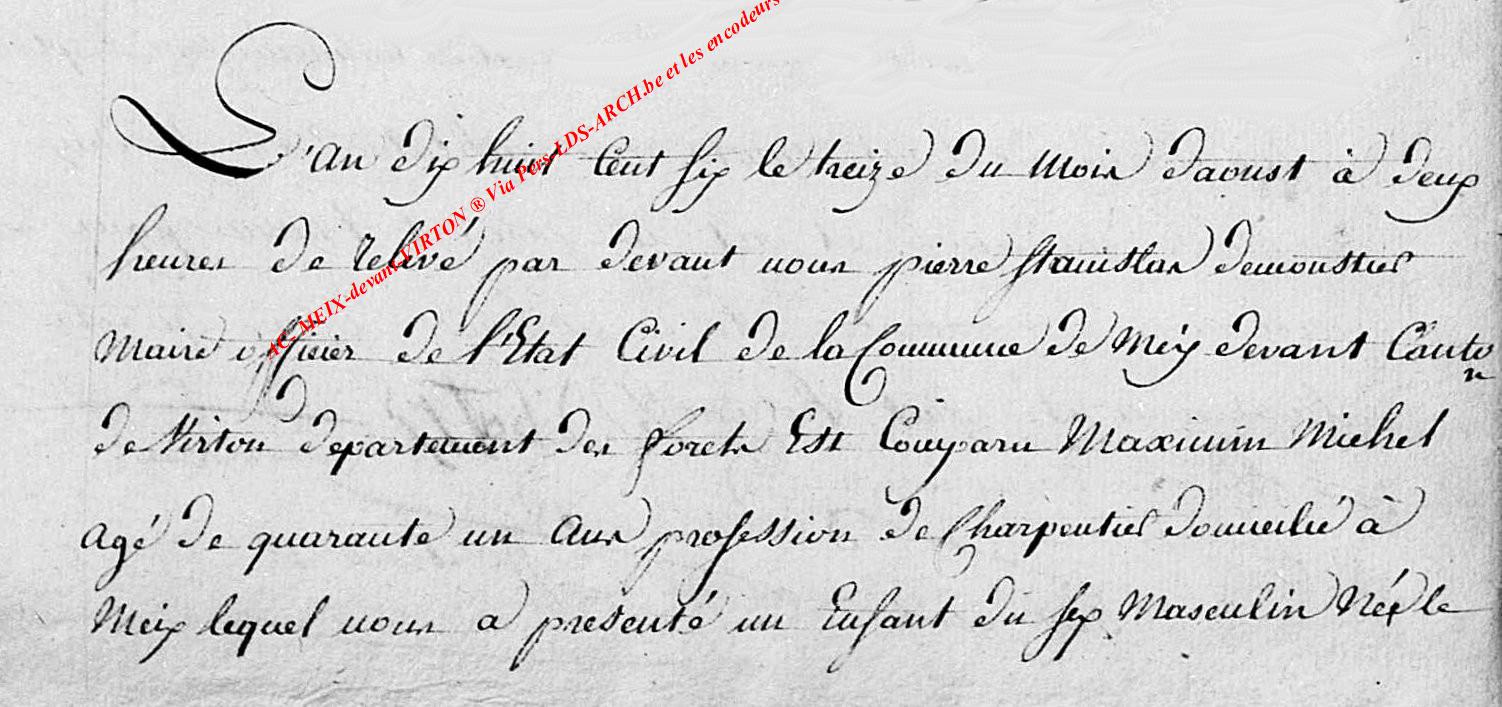 AC MEIX-devant-VIRTON ® Via Pers-LDS-ARCH.be et les encodeurs
L'an dix huit Cent six le treize du Mois daoust à deux
heures de relevé par devant nous pierre stanislas demoustier
Maire officier de l'Etat Civil de la Commune de Méix devant Canton
de Virton departement des forets Est Comparu Maximin Michel
agé de quarante un ans profession de Charpentier domicilié à
Meix lequel nous a presenté un Enfant du sex Masculin Néx le